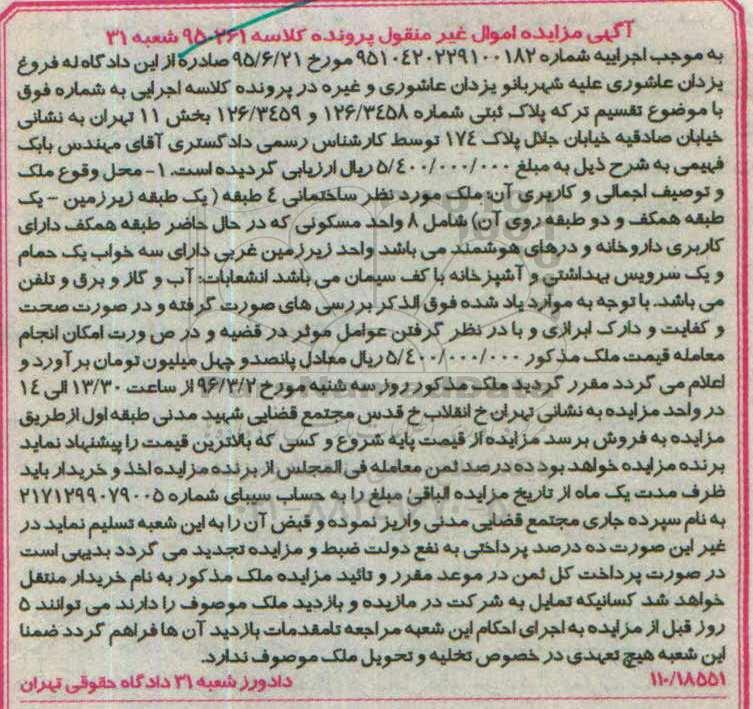 آگهی مزایده اموال غیر منقول پرونده کلاسه ۲۶۱-۹۵ شعبه ۳۱
به موجب اجراییه شماره ۹۵۱۰۴۲۰۲۲۹۱۰۰۱۸۲ مورخ ۹۵/۶/۲۱ صادره از این دادگاه له فروغ
یزدان عاشوری علیه شهربانو یزدان عاشوری و غیره در پرونده کلاسه اجرایی به شماره فوق
با موضوع تقسیم ترکه پلاک ثبتی شماره ۱۲۶/۳۴۵۸ و ۱۲۶/۳۴۵۹ بخش ۱۱ تهران به نشانی
خیابان صادقیه خیابان جلال پلاک ۱۷۴ توسط کارشناس رسمی دادگستری آقای مهندس بابک
فهیمی به شرح ذیل به مبلغ ۵/۴۰۰/۰۰۰/۰۰۰ ریال ارزیابی گردیده است. ۱- محل وقوع ملک
و توصیف اجمالی و کاربری آن: ملک مورد نظر ساختمانی ۴ طبقه ( یک طبقه زیرزمین - یک
طبقه همکف و دو طبقه روی آن) شامل ۸ واحد مسکونی که در حال حاضر طبقه همکف دارای
کاربری داروخانه و درهای هوشمند می باشد واحد زیرزمین غربی دارای سه خواب یک حمام
و یک سرویس بهداشتی و آشپزخانه با کف سیمان می باشد انشعابات: آب و گاز و برق و تلفن
می باشد. با توجه به موارد یاد شده فوق الذکر بررسی های صورت گرفته و در صورت صحت
و کفایت و دارک ابرازی و با در نظر گرفتن عوامل موثر در قضیه و در ص ورت امکان انجام
معامله قیمت ملک مذکور ۵/۴۰۰/۰۰۰/۰۰۰ ریال معادل پانصدو چهل میلیون تومان برآورد و
اعلام می گردد مقرر گردید ملک مذکور روز سه شنبه مورخ ۹۶/۳/۲ از ساعت ۱۳/۳۰ الی ۱۴
در واحد مزایده به نشانی تهران خ انقلاب خ قدس مجتمع قضایی شهید مدنی طبقه اول از طریق
مزایده به فروش برسد مزایده از قیمت پایه شروع و کسی که بالاترین قیمت را پیشنهاد نماید
برنده مزایده خواهد بود ده درصد ثمن معامله فی المجلس از برنده مزایده اخذ و خریدار باید
ظرف مدت یک ماه از تاریخ مزایده الباقی مبلغ را به حساب سیبای شماره ۲۱۷۱۲۹۹۰۷۹۰۰۵
به نام سپرده جاری مجتمع قضایی مدنی واریز نموده و قبض آن را به این شعبه تسلیم نماید در
غیر این صورت ده درصد پرداختی به نفع دولت ضبط و مزایده تجدید می گردد بدیهی است
در صورت پرداخت کل ثمن در موعد مقرر و تائید مزایده ملک مذکور به نام خریدار منتقل
خواهد شد کسانیکه تمایل به شرکت در مازیده و بازدید ملک موصوف را دارند می توانند ۵
روز قبل از مزایده به اجرای احکام این شعبه مراجعه تامقدمات بازدید آن ها فراهم گردد ضمنا
این شعبه هیچ تعهدی در خصوص تخلیه و تحویل ملک موصوف ندارد.
۱۱۰/۱۸۵۵۱ دادورز شعبه ۳۱ دادگاه حقوقی تهران